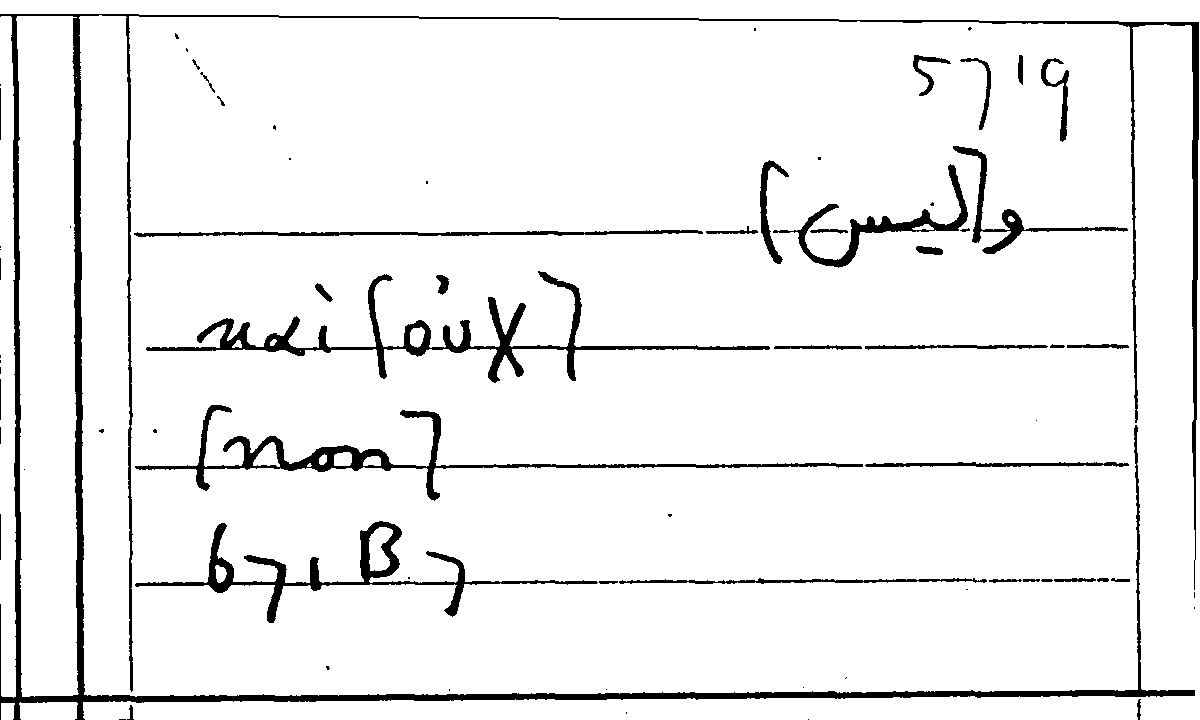 57,9
و[ليس]
καὶ [οὐχ]
[non]
671B7